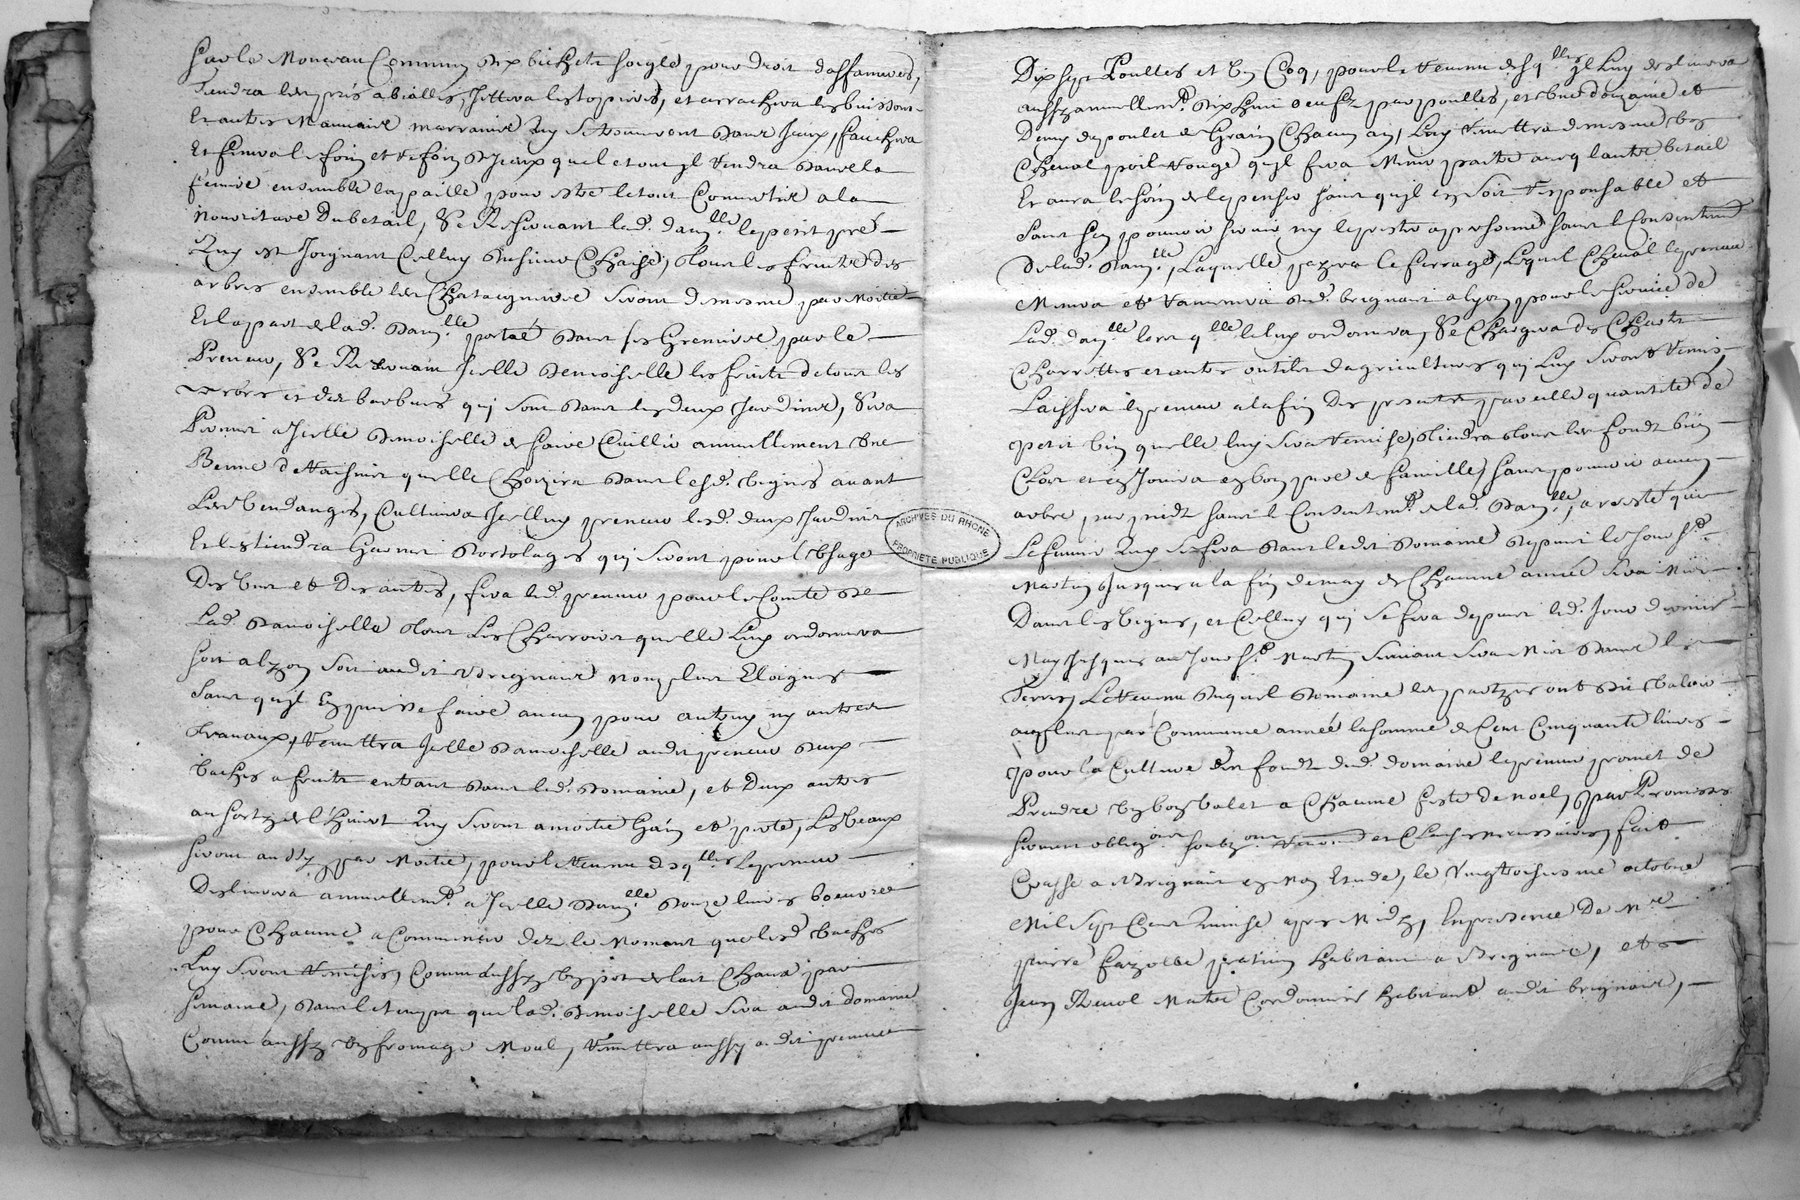 sur le monceau commun six bichets soigle pour droit daffanures,
Tiendra les prés abiallés, Jettera les topieres, et arrachera les buissons
Et autres mauvaise marraine quy se trouvent dans Iceux, fauchera
Et fenera le foin et refoin d'Iceux quel et ou yl tiendra dans la
feniere ensemble la paille pour etre le tout converties a la
nourriture du betail, se Reservant lad. dam.lle le petit pré
Quy est Joignant Celluy du sieur Chaize, tous les fruits des
arbres ensemble les Chataignes seront de mesme par moitié
Et la part de lad. dam.lle portée dans ses greniers par le
Preneur, se Reservant Icelle demoiselle les fruits de tous les
arbres et des barbues qui sont dans les deux Jardins, sera
Permis a Icelle demoiselle de faire Cuillir annuellement une
Benne de raisins quelle Choizira dans lesd. vignes avant
Les vendanges, Cultivera Icelluy preneur lesd. deux Jardins
Et les tiendra Garnis d'ortolages qui seront pour l'usage
Des uns et des autres, fera led. preneur pour le Comte de
Lad. damoiselle tous les Charrois quelle luy ordonnera
soit a lyon soit audit Brignais nonplus Eloignes
Sans quyl En puisse faire aucun pour autruy ny autres
travaux, remettra Icelle damoiselle audit preneur deux
vaches a fruit entrant dans led. domaine, et deux autres
au sortir de l'hivert Quy seront a moitié Gain et perte, Les veaux
seront aussy par moitié, pour le revenu desq.lles le preneur
Deslivrera annuellem.t a Icelle dam.lle douze livres beurre
pour Chacune a Commencer dez le moment que lesd. vaches
Luy seront remises, Comme aussy un pot de lait Chaud par
semaine, dans le temps que lad. demoiselle sera audit domaine
Comme aussy un fromage moul, remettra aussy audit preneur
Dix sept Poulles et un Coq, pour le revenu desq.lles yl luy deslivrera
aussy annuellem.t dix huit oeufz par poulles, et une douzaine et
Demy de poulet de Grain Chacun an, luy remettra de mesme un
Cheval poil rouge quyl fera nourir parte avec l'autre betail
Et aura le soin de le penser sans quyl en soit responsable et
sans s'en pouvoir servir ny le prester a personne sans le Consentem.t
de lad. dam.lle, Laquelle payera le ferrage, lequel Cheval le preneur
menera et ramenera dud. brignais a lyon pour le service de
Lad. dam.lle lors q.lle le luy ordonnera, Se Chargera des Chars
Charrettes et autres outils d'agricultures qui luy seront remis,
Laissera le preneur a la fin des presentes pareille quantité de
petit vin quelle luy sera remise, tiendra tous les fonds bien
Clos et en Jouira en bon pere de famille, sans pouvoir aucun
arbre par pieds sans le Consentem.t de lad. dam.lle, a resté que
Le fumier Quy se fera dans le dit domaine depuis le Jour S.t
Martin Jusques a la fin de may de Chacune année sera mis
Dans les vignes, et Celluy qui se fera depuis led. Jour dernier
May Jusques au Jour S.t Martin suivant sera mis dans les
Terres, Le revenu duquel domaine les partyes ont dit valoir
au plus par Commune année la somme de Cent Cinquante livres
pour la Culture des fondz dud. domaine le preneur promet de
Prendre un bon valet a Chacune feste de noel, par Promesses
serment oblig.ons soubz.ons renon.ons et clauses necessaires, fait
Et passé a Brignais en mon Etude, le vingttroisiesme octobre
mil sept Cent Quinse apres midy, En presence de m.re
pierre fayolle praticien habitant a Brignais, et
Jean Thevol maitre Cordonnier habitant audit brignais,
ARCHIVES DU RHONE
PROPRIETE PUBLIQUE